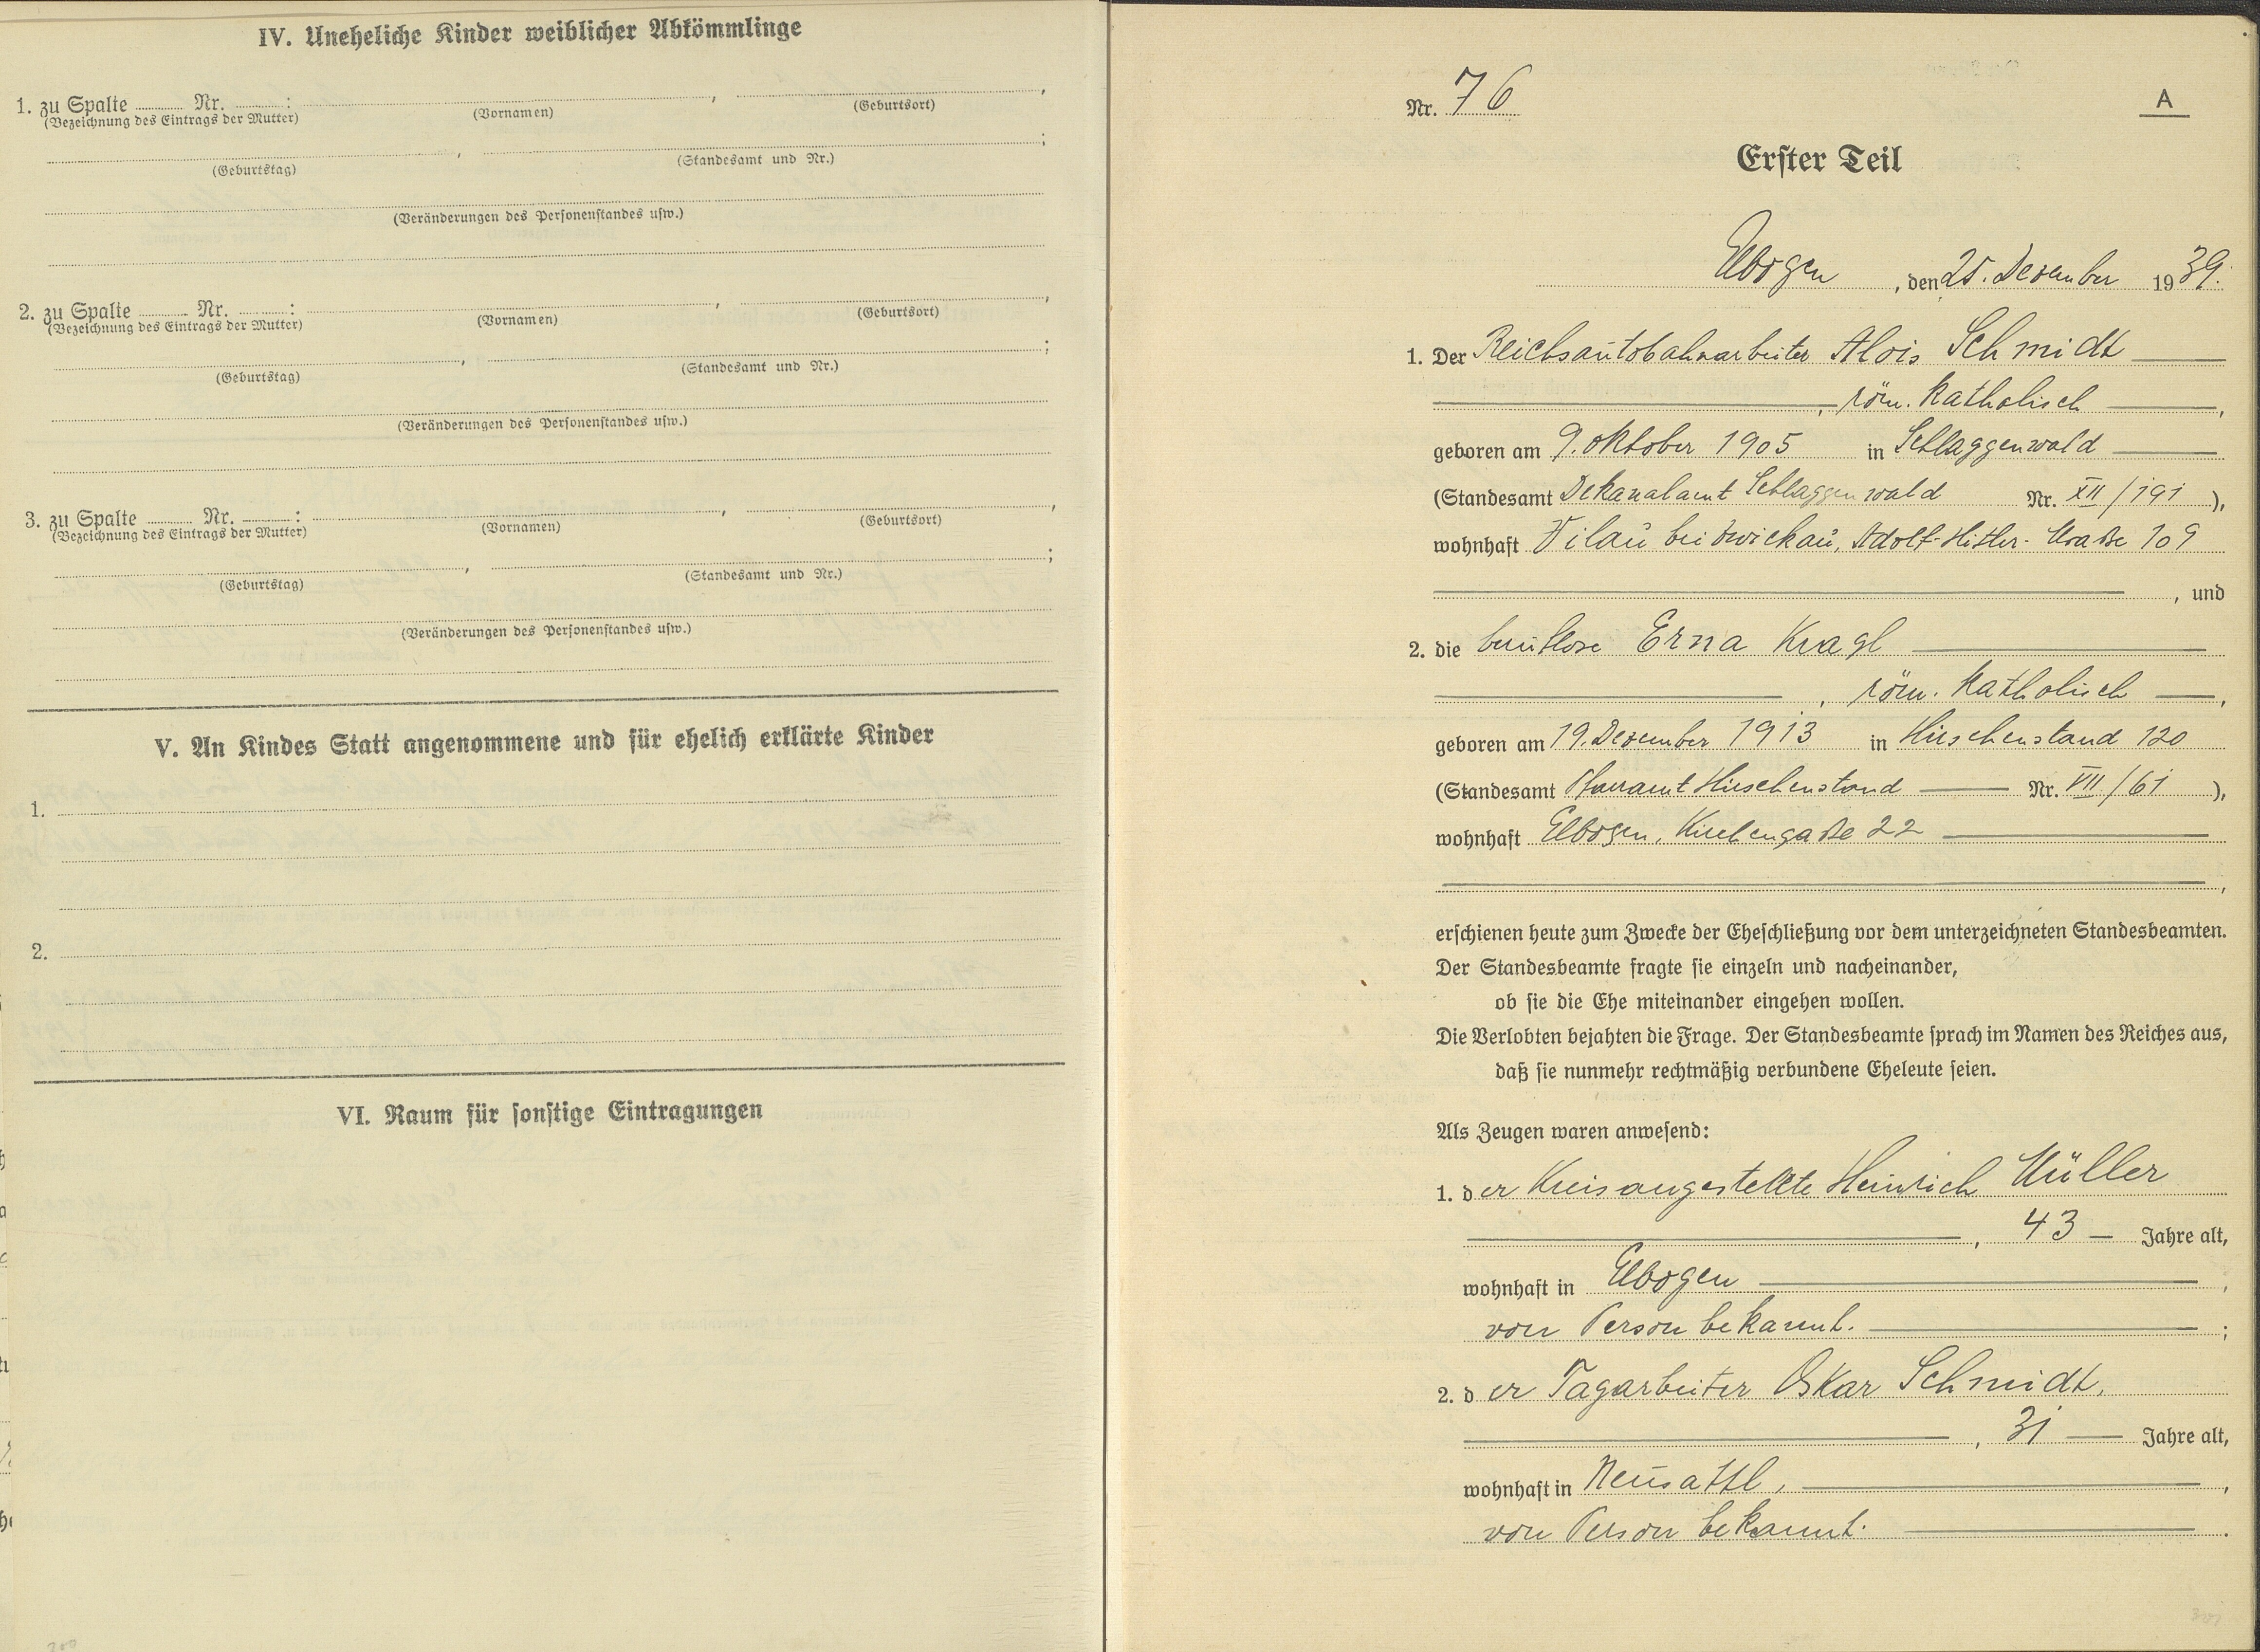 IV. Uneheliche Kinder weiblicher Abkömmlinge
1. zu Spalte ........ Nr. ........ : ........ , ........ ,
(Bezeichnung des Eintrags der Mutter) (Vornamen) (Geburtsort)
........ , ........ ;
(Geburtstag) (Standesamt und Nr.)
(Veränderungen des Personenstandes usw.)
2. zu Spalte ........ Nr. ........ : ........ , ........ ,
(Bezeichnung des Eintrags der Mutter) (Vornamen) (Geburtsort)
........ , ........ ;
(Geburtstag) (Standesamt und Nr.)
(Veränderungen des Personenstandes usw.)
3. zu Spalte ........ Nr. ........ : ........ , ........ ,
(Bezeichnung des Eintrags der Mutter) (Vornamen) (Geburtsort)
........ , ........ ;
(Geburtstag) (Standesamt und Nr.)
(Veränderungen des Personenstandes usw.)
V. An Kindes Statt angenommene und für ehelich erklärte Kinder
1.
2.
VI. Raum für sonstige Eintragungen
Nr. 76
A
Erster Teil
Elbogen , den 25. Dezember 1939.
1. Der Reichsautobahnarbeiter Alois Schmidt
, röm. katholisch ,
geboren am 9. Oktober 1905 in Schlaggenwald
(Standesamt Dekanalamt Schlaggenwald Nr. XII/191 ),
wohnhaft Vilau bei Zwickau, Adolf-Hitler-Straße 109
, und
2. die berufslose Erna Kragl
, röm. katholisch ,
geboren am 19. Dezember 1913 in Hirschenstand 120
(Standesamt Pfarramt Hirschenstand Nr. VII/61 ),
wohnhaft Elbogen, Kirchengaße 22
,
erschienen heute zum Zwecke der Eheschließung vor dem unterzeichneten Standesbeamten.
Der Standesbeamte fragte sie einzeln und nacheinander,
ob sie die Ehe miteinander eingehen wollen.
Die Verlobten bejahten die Frage. Der Standesbeamte sprach im Namen des Reiches aus,
daß sie nunmehr rechtmäßig verbundene Eheleute seien.
Als Zeugen waren anwesend:
1. der Kreisangestellte Heinrich Müller
, 43 Jahre alt,
wohnhaft in Elbogen ,
von Person bekannt. ;
2. der Tagarbeiter Oskar Schmidt,
, 31 Jahre alt,
wohnhaft in Neusattl, ,
von Person bekannt. .